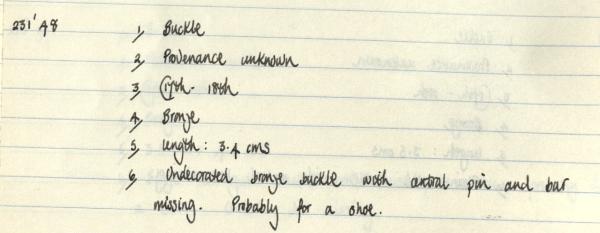 231'48 1, Buckle
2, Provenance unknown
3, 17th - 18th
4, Bronze
5, length : 3.4 cms
6, Undecorated bronze buckle with central pin and bar
missing. Probably for a shoe.